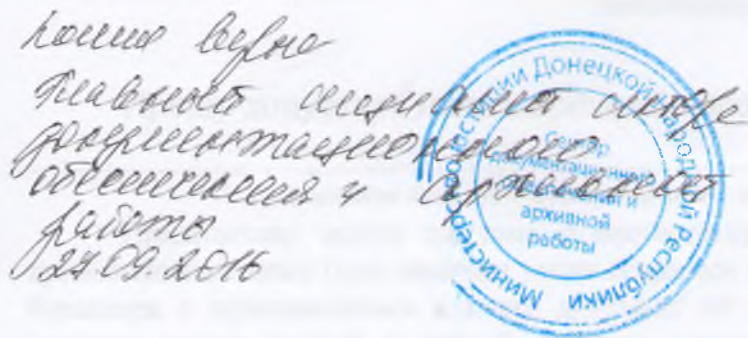 Копия верна
Главный специалист сектора
документационного
обеспечения и архивной
работы
27.09.2016
Министерство юстиции Донецкой Народной Республики
Сектор
документационного
обеспечения и
архивной
работы